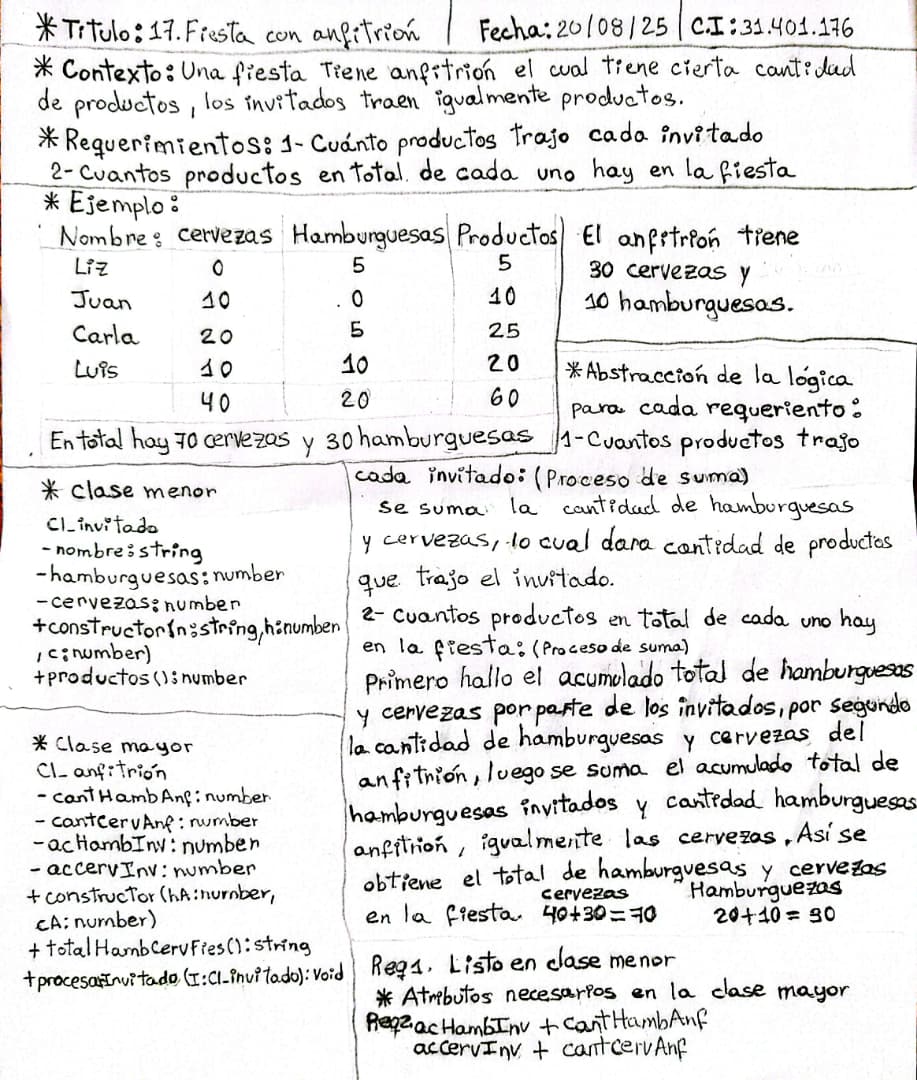 * Titulo: 17. Fiesta con anfitrión | Fecha: 20/08/25 | C.I: 31.401.176
* Contexto: Una fiesta Tiene anfitrion el cual tiene cierta cantidad
de productos, los invitados traen igualmente productos.
* Requerimientos: 1- Cuánto productos trajo cada invitado
2- Cuantos productos en total de cada uno hay en la fiesta
* Ejemplo:
Nombre: cervezas Hamburguesas Productos
Liz 0 5 5
Juan 10 0 10
Carla 20 5 25
Luis 10 10 20
40 20 60
En total hay 70 cervezas y 30 hamburguesas
El anfitrión tiene
30 cervezas y
10 hamburguesas.
* Abstracción de la lógica
para cada requeriento:
1- Cuantos productos trajo
cada invitado: (Proceso de suma)
se suma la cantidad de hamburguesas
y cervezas, lo cual dara cantidad de productos
que trajo el invitado.
2- Cuantos productos en total de cada uno hay
en la fiesta: (Proceso de suma)
Primero hallo el acumulado total de hamburguesas
y cervezas por parte de los invitados, por segundo
la cantidad de hamburguesas y cervezas del
anfitrión, luego se suma el acumulado total de
hamburguesas invitados y cantidad hamburguesas
anfitrión, igualmente las cervezas. Así se
obtiene el total de hamburguesas y cervezas
en la fiesta. cervezas 40+30=70 Hamburguezas 20+10=30
Req1. Listo en clase menor
* Atributos necesarios en la clase mayor
Req2. acHambInv + cantHambAnf
accervInv + cantcervAnf
* Clase menor
Cl_invitado
- nombre: string
- hamburguesas: number
- cervezas: number
+ constructor(n: string, h: number
, c: number)
+ productos(): number
* Clase mayor
Cl_anfitrión
- cantHambAnf: number
- cantCervAnf: number
- acHambInv: number
- accervInv: number
+ constructor (hA: number,
cA: number)
+ totalHambCervFies(): string
+ procesarInvitado (I: Cl_invitado): Void